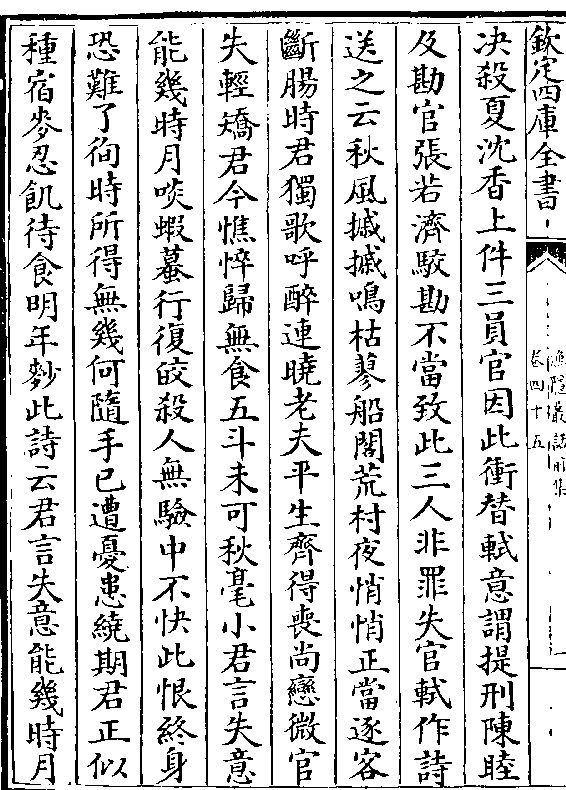 欽定四庫全書
漁隱叢話前集
卷四十五
决殺夏沈香上件三員官因此衝替軾意謂提刑陳睦
及勘官張若濟駮勘不當致此三人非罪失官軾作詩
送之云秋風摵摵鳴枯蓼船閣荒村夜悄悄正當逐客
斷腸時君獨歌呼醉連曉老夫平生齊得喪尚戀微官
失輕矯君今憔悴歸無食五斗未可秋毫小君言失意
能幾時月啖蝦蟇行復皎殺人無驗中不快此恨終身
恐難了徇時所得無幾何隨手已遭憂患繞期君正似
種宿麥忍飢待食明年麨此詩云君言失意能幾時月